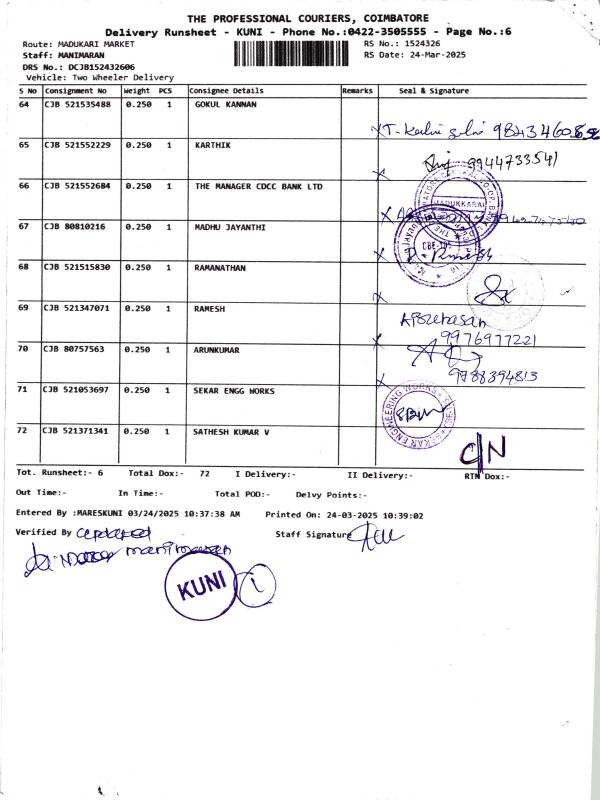 THE PROFESSIONAL COURIERS, COIMBATORE
Delivery Runsheet - KUNI - Phone No.:0422-3505555 - Page No.:6
Route: MADUKARI MARKET
RS No.: 1524326
Staff: MANIMARAN
RS Date: 24-Mar-2025
DRS No.: DCJB152432606
Vehicle: Two Wheeler Delivery
S No Consignment No Weight PCS Consignee Details Remarks Seal & Signature
64 CJB 521535488 0.250 1 GOKUL KANNAN
65 CJB 521552229 0.250 1 KARTHIK
9944733541
66 CJB 521552684 0.250 1 THE MANAGER CDCC BANK LTD
MADUKKARAI
67 CJB 80810216 0.250 1 MADHU JAYANTHI
68 CJB 521515830 0.250 1 RAMANATHAN
69 CJB 521347071 0.250 1 RAMESH
9976977221
70 CJB 80757563 0.250 1 ARUNKUMAR
9788394813
71 CJB 521053697 0.250 1 SEKAR ENGG WORKS
SEKAR ENGINEERING WORKS
72 CJB 521371341 0.250 1 SATHESH KUMAR V
C/N
Tot. Runsheet:- 6 Total Dox:- 72 I Delivery:- II Delivery:- RTN Dox:-
Out Time:- In Time:- Total POD:- Delvy Points:-
Entered By :MARESKUNI 03/24/2025 10:37:38 AM Printed On: 24-03-2025 10:39:02
Verified By Staff Signature
manimaran
KUNI 1